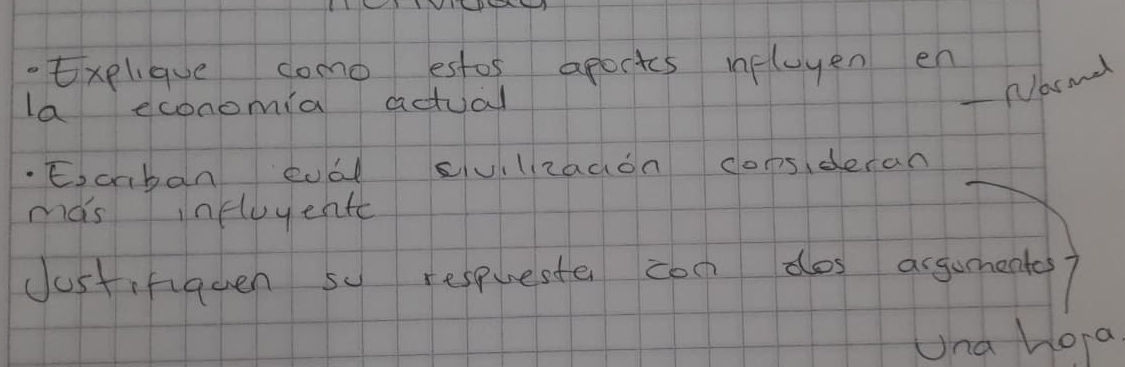 Actividad
• Explique como estos aportes influyen en
la economía actual
— Normal
• Escriban cuál sivilización consideran
más influyente
Justifiquen su respuesta con dos argumentos
Una hoja.